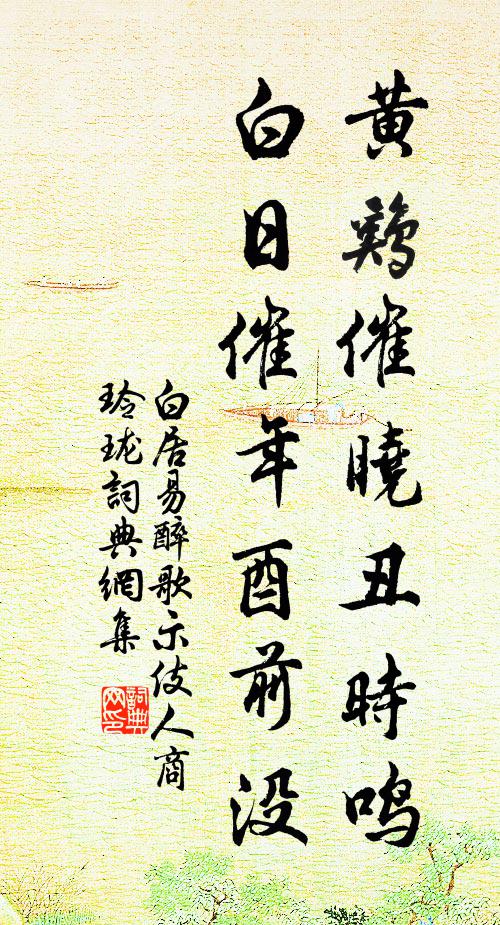 黄鷄催曉丑時鳴
白日催年酉前没
白居易醉歌示伎人商
玲珑詞典網集
詞典网印